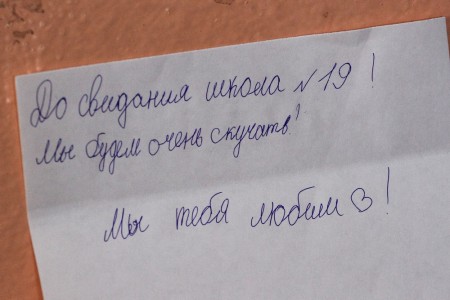 До свидания школа №19!
Мы будем очень скучать!
Мы тебя любим ♡!